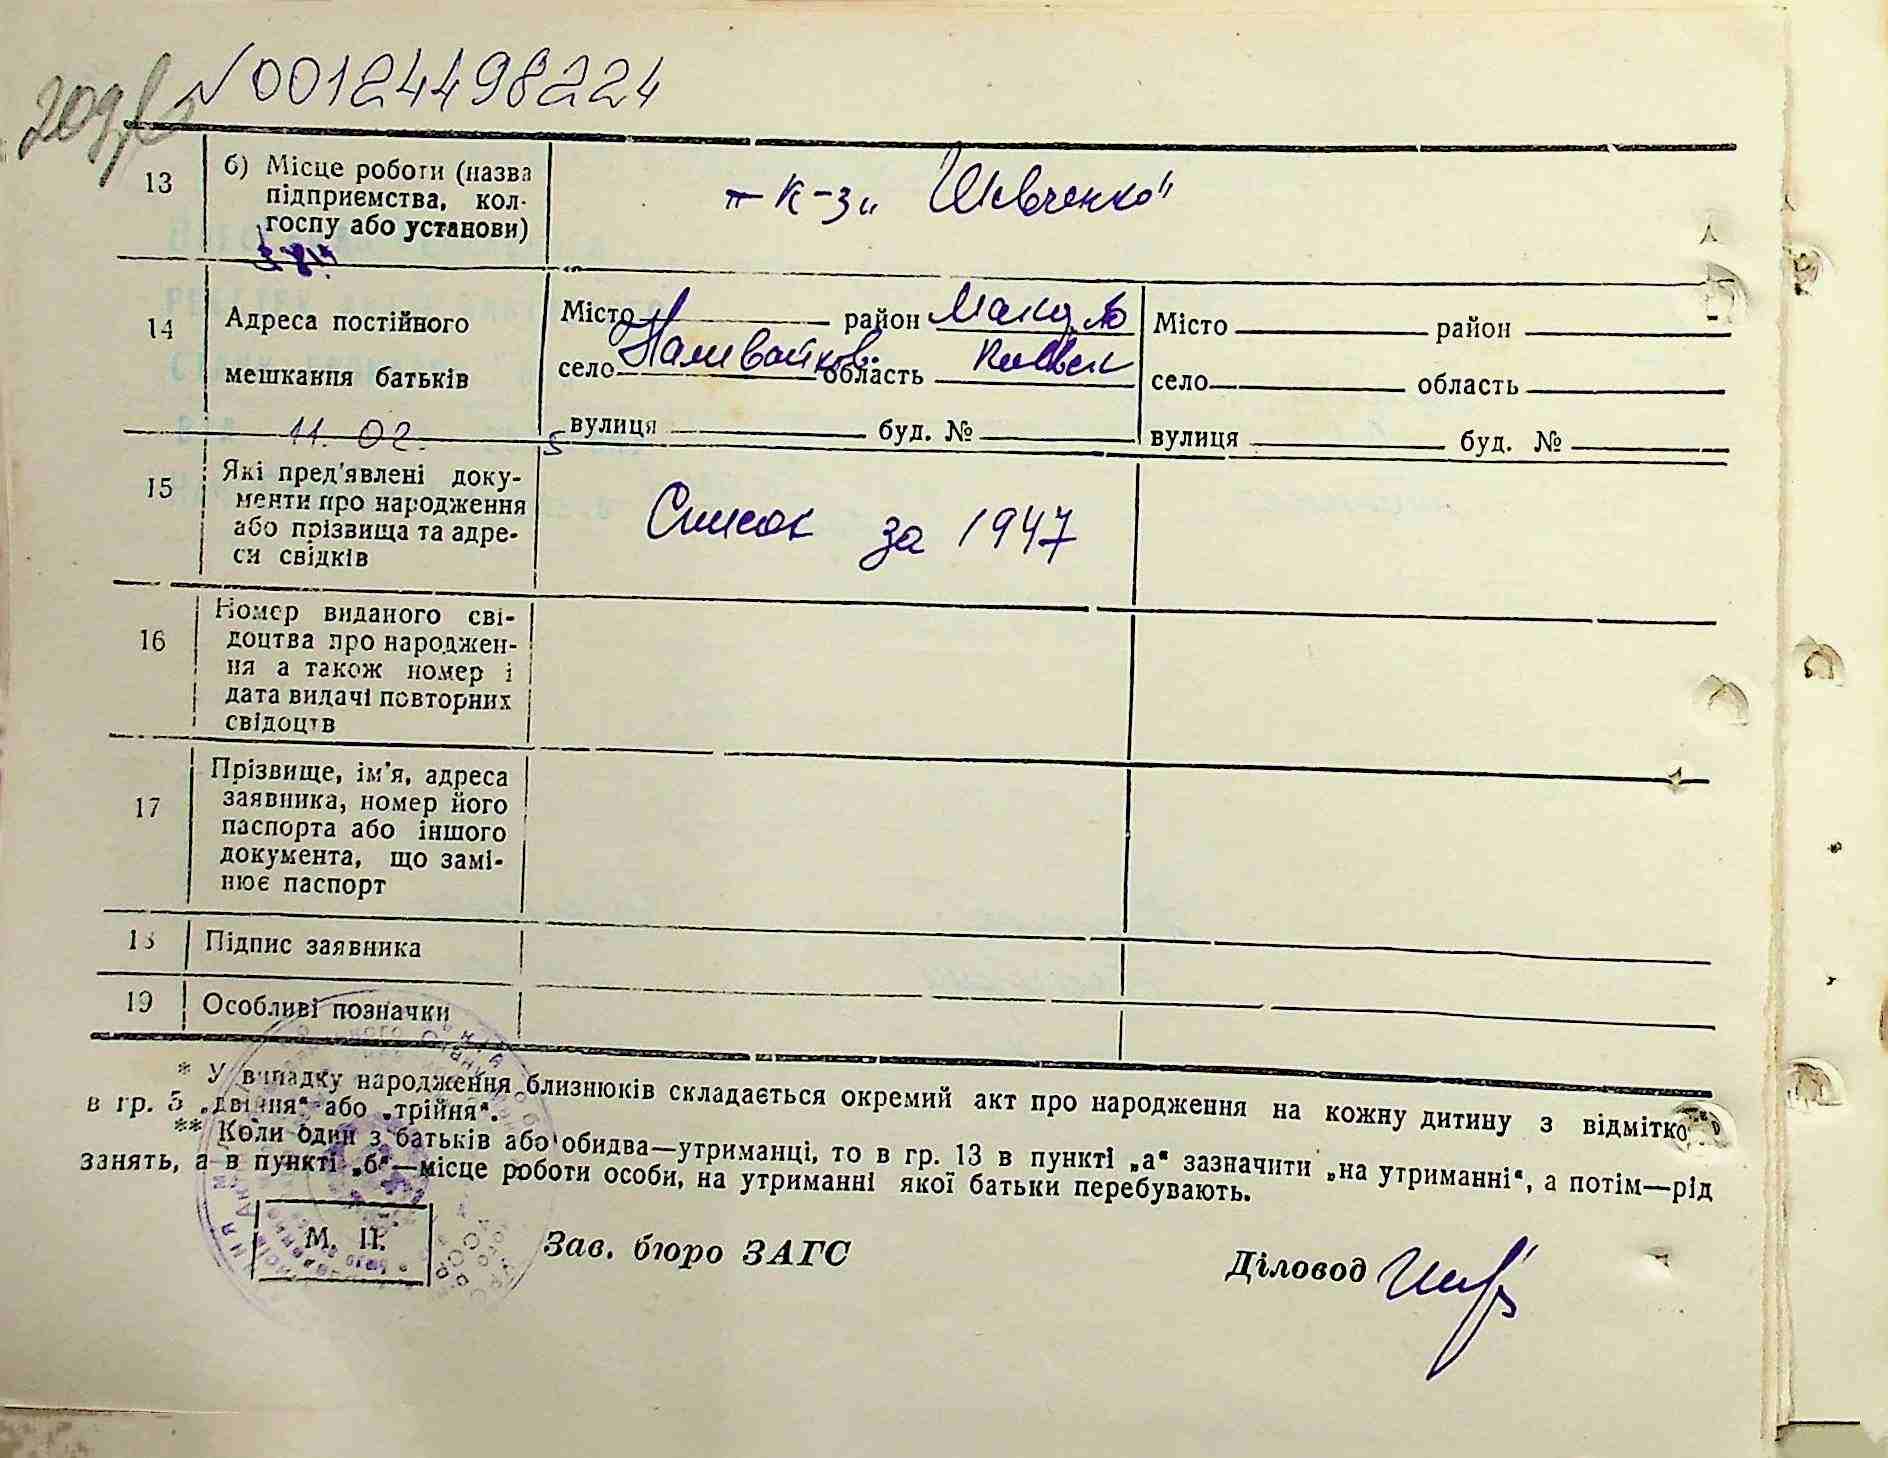 N00124498224
13
б) Місце роботи (назва
підприємства, кол-
госпу або установи)
к-з „Шевченко"
14
Адреса постійного
мешкання батьків
Місто район Макар
село Наливайков. область Київськ
вулиця буд. №
Місто район
село область
вулиця буд. №
11. 02.
15
Які пред'явлені доку-
менти про народження
або прізвища та адре-
си свідків
Список за 1947
16
Номер виданого сві-
доцтва про народжен-
ня а також номер і
дата видачі повторних
свідоцтв
17
Прізвище, ім'я, адреса
заявника, номер його
паспорта або іншого
документа, що замі-
нює паспорт
18
Підпис заявника
19
Особливі позначки
* У випадку народження близнюків складається окремий акт про народження на кожну дитину з відмітко
в гр. 5 „двійня“ або „трійня“.
** Коли один з батьків або обидва—утриманці, то в гр. 13 в пункті „а“ зазначити „на утриманні“, а потім—рід
занять, а в пункті „б“—місце роботи особи, на утриманні якої батьки перебувають.
М. П.
Зав. бюро ЗАГС
Діловод